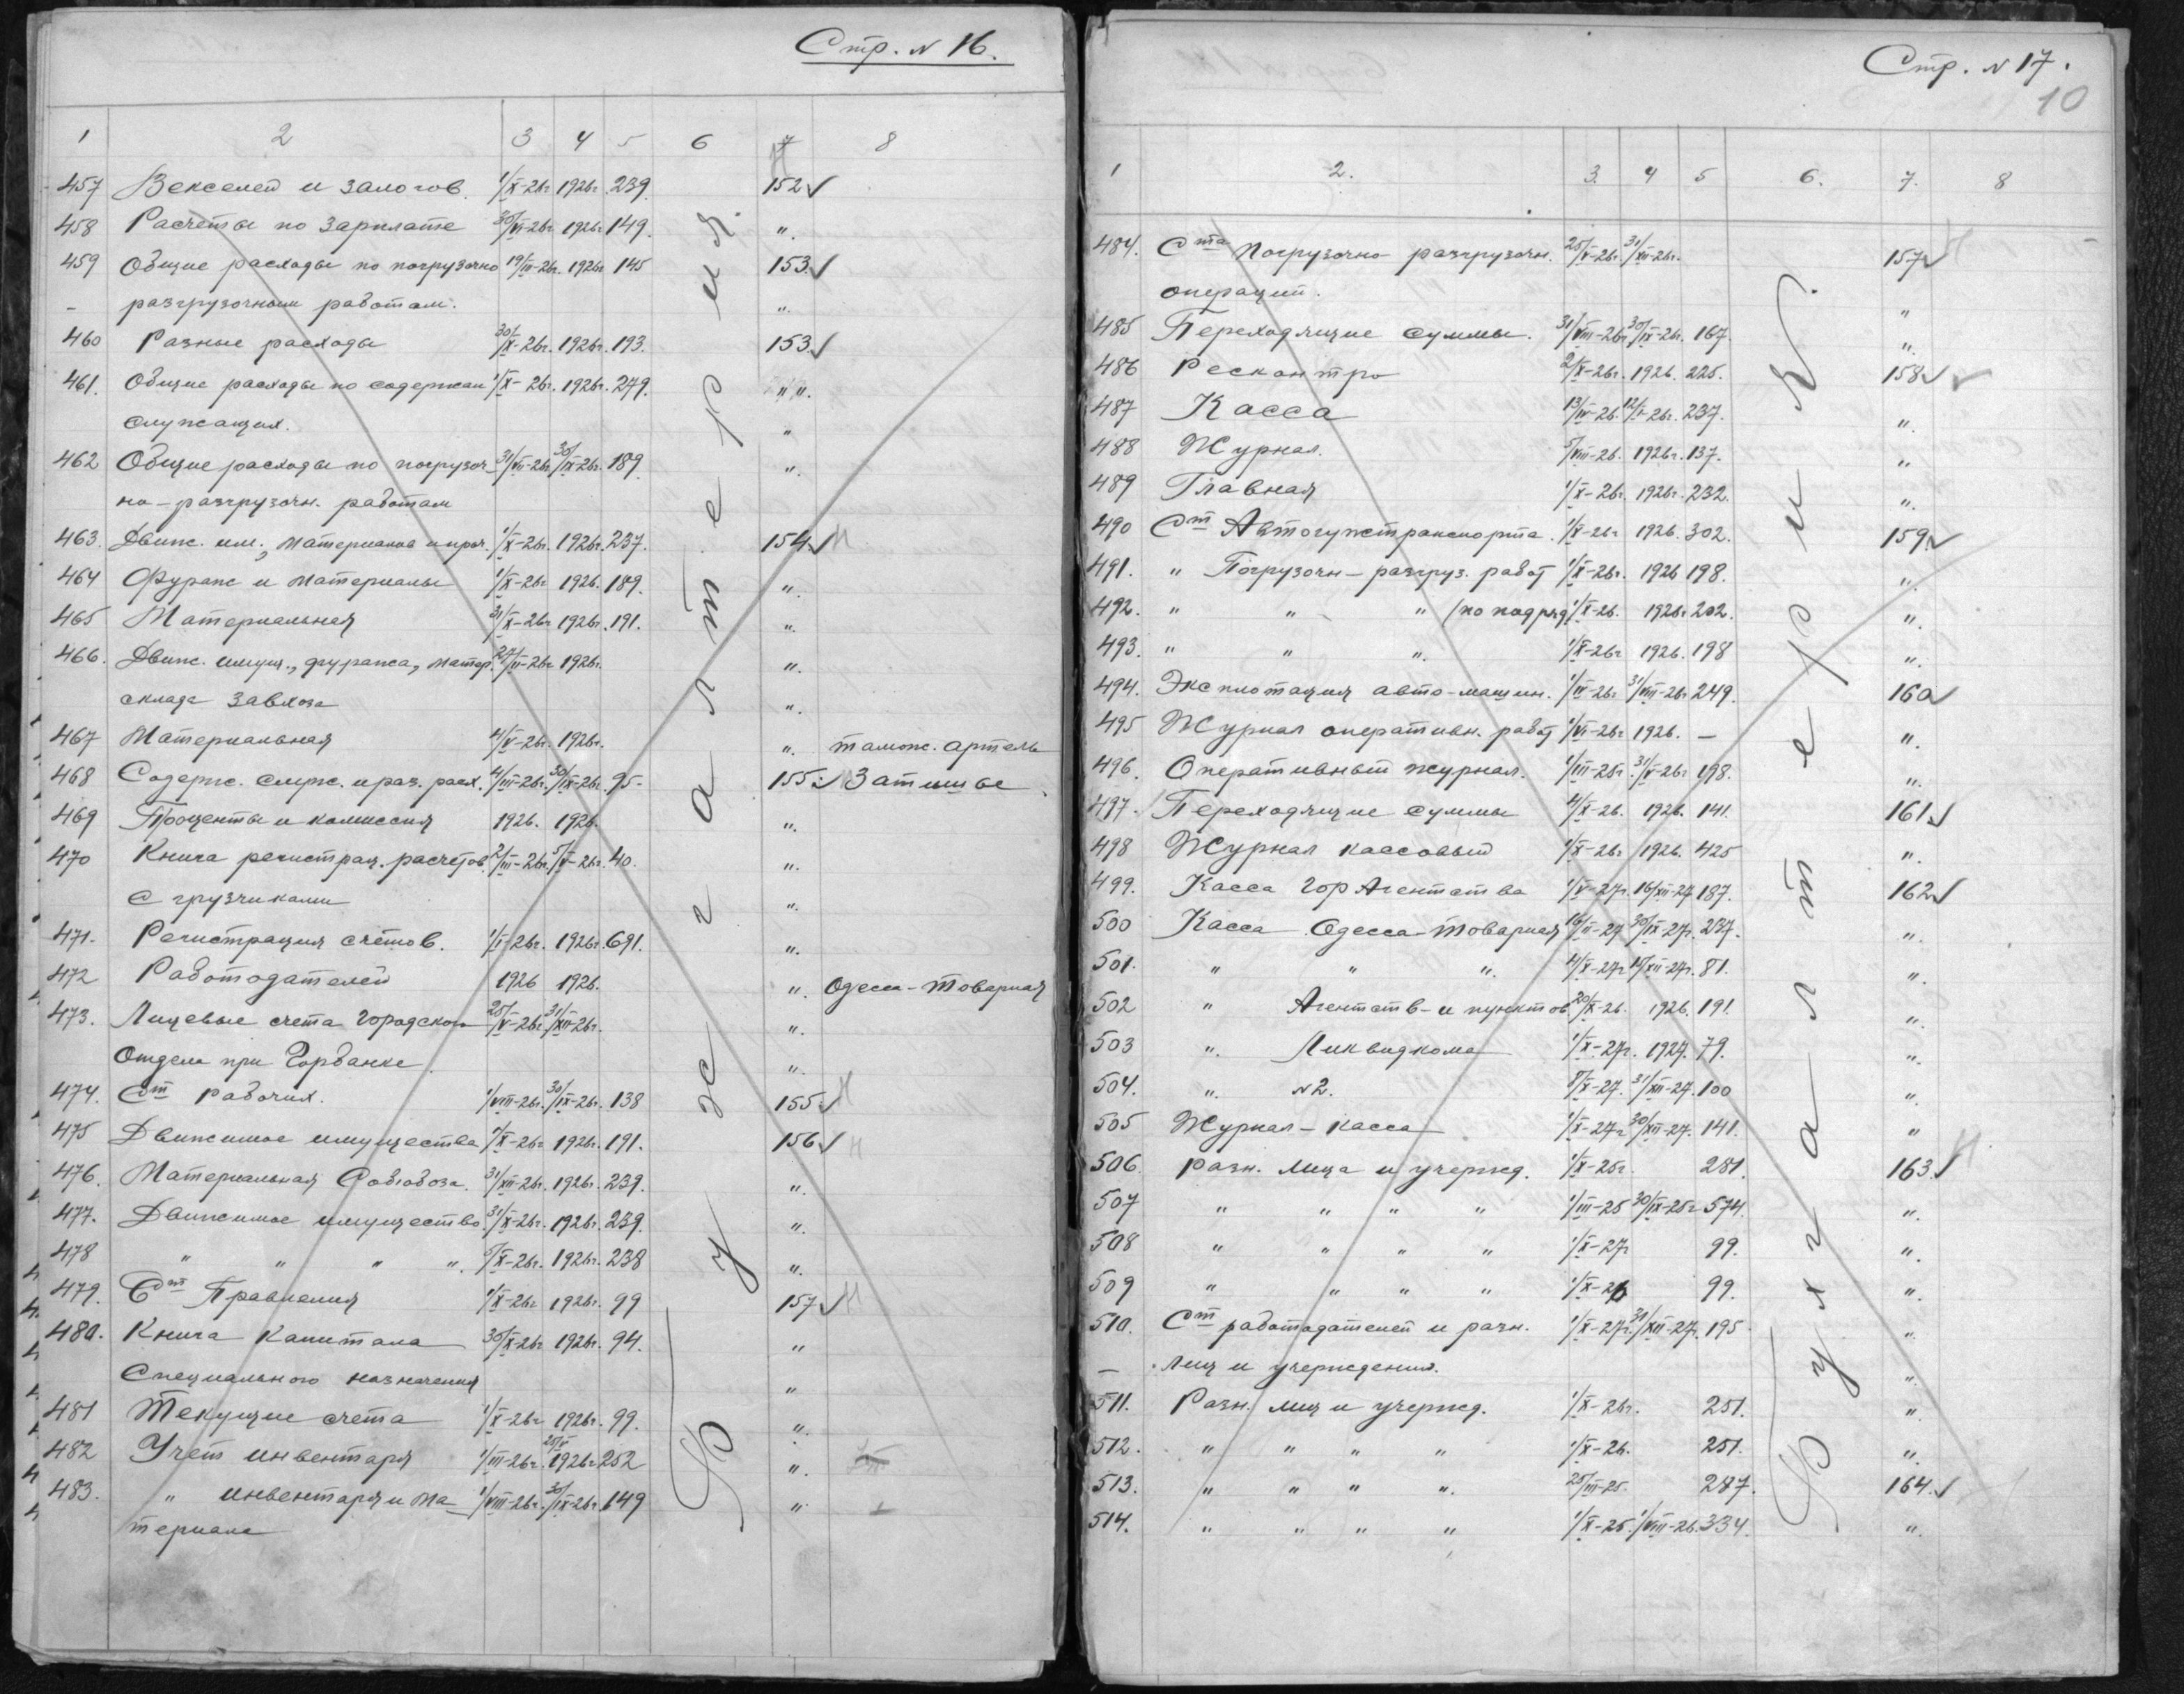 Стр. № 16.
1 2 3 4 5 6 7 8
457 Векселей и залогов. 1/X-26г. 1926г. 239. 152
458 Расчеты по зарплате 30/VI-26г. 1926г. 149. "
459 Общие расходы по погрузочно 19/III-26г. 1926г. 145 153.
- разгрузочным работам. "
460 Разные расходы 30/X-26г. 1926г. 193. 153.
461. Общие расходы по содержан 1/X-26г. 1926г. 279. "
служащих. "
462 Общие расходы по погрузоч- 31/VII-26г. 30/IX-26г. 189. "
но-разгрузочн. работам
463. Движ. им., материалов и проч. 1/X-26г. 1926г. 237. 154.
464 Фураж и материалы 1/X-26г 1926. 189. "
465 Материальная 31/X-26г 1926г. 191. "
466. Движ. имущ., фуража, матер. 27/II-26г 1926г. "
склада Завхоза "
467 Материальная 4/V-26г. 1926г. " таможс. артель
468 Содерж. служ. и раз. расх. 4/III-26г. 30/IX-26г. 95- 155. Затишье
469 Проценты и комиссия 1926. 1926. "
470 Книга регистрац. расчетов 2/III-26г. 5/V-26г. 40. "
с грузчиками "
471. Регистрация счётов. 1/I-26г. 1926г. 691. "
472 Работодателей 1926 1926. " Одесса-Товарная
473. Лицевые счета Городского 28/V-26г. 31/XII-26г. "
Отдела при Горбанке. "
474. Ст рабочих. 1/VIII-26г. 30/IX-26г. 138 155.
475 Движимое имущества 1/X-26г 1926г. 191. 156
476. Материальная 31/XII-26г. 1926г. 239. "
477. Движимое имущество. 31/X-26г. 1926г. 239. "
478 " " " " 5/X-26г. 1926г. 238 "
479. Ст Правления 1/X-26г 1926г. 99 157
480. Книга Капитала 30/X-26г 1926г. 94. "
Специального назначения "
481 Текущие счета 1/X-26г 1926г. 99. "
482 Учет инвентаря 1/III-26г. 25/V 1926г 252 "
483. " инвентаря и ма- 1/VIII-26г. 30/IX-26г. 149 "
териала
Бухгалтерия.
Стр. № 17.
10
1 2. 3. 4 5 6. 7. 8
484. Ста Погрузочно разгрузочн. 25/V-26г. 31/XII-26г. 157
операций. "
485 Переходящие суммы. 31/VIII-26г. 30/IX-26г. 167 "
486 Рескантро 2/X-26г. 1926. 225. 158
487 Касса 13/IV-26. 12/X-26г. 237. "
488 Журнал. 5/VIII-26. 1926г. 137. "
489 Главная 1/X-26г. 1926г. 232. "
490 Ст Автогужтранспорта. 1/X-26г 1926. 302. 159.
491. " Погрузочн-разгруз. работ 1/X-26г. 1926 198. "
492. " " " (по подряд 1/X-26. 1926г. 202. "
493. " " " 1/X-26г 1926. 198 "
494. Эксплотация авто-машин. 1/IV-26г 31/VIII-26г 249. 160
495 Журнал оперативн. работ 1/VI-26г 1926. - "
496. Оперативный журнал. 1/III-25г. 31/X-26г 198. "
497. Переходящие суммы 4/X-26. 1926. 141. 161.
498 Журнал кассовый 1/X-26г 1926. 425 "
499. Касса Гор Агентства 1/V-27г. 16/XII-27 187. 162
500 Касса Одесса-Товарная 16/II-27 30/IX-27г. 237. "
501. " " " 4/X-27г 15/XII-27г. 81. "
502 " Агентств-и пунктов 20/X-26. 1926. 191. "
503 " Ликвидкома 1/X-27г. 1927. 79. "
504. " №2. 8/X-27. 31/XII-27. 100 "
505 Журнал-касса 1/X-27г 30/XII-27. 141. "
506. разн. лица и учережд. 1/X-25г. 281. 163.
507 " " " " 1/III-25 30/IX-25г 574. "
508 " " " " 1/X-27г 99. "
509 " " " " 1/X-26 99. "
510. Ст работодателей и разн. 1/X-27г. 31/XII-27г. 195 "
- лиц и учереждения. "
511. Разн. лиц и учережд. 1/X-26г. 251. "
512. " " " " 1/X-26. 251. "
513. " " " " 25/III-25. 287. 164.
514. " " " " 1/X-25. 1/VIII-26. 334. "
Бухгалтерия.